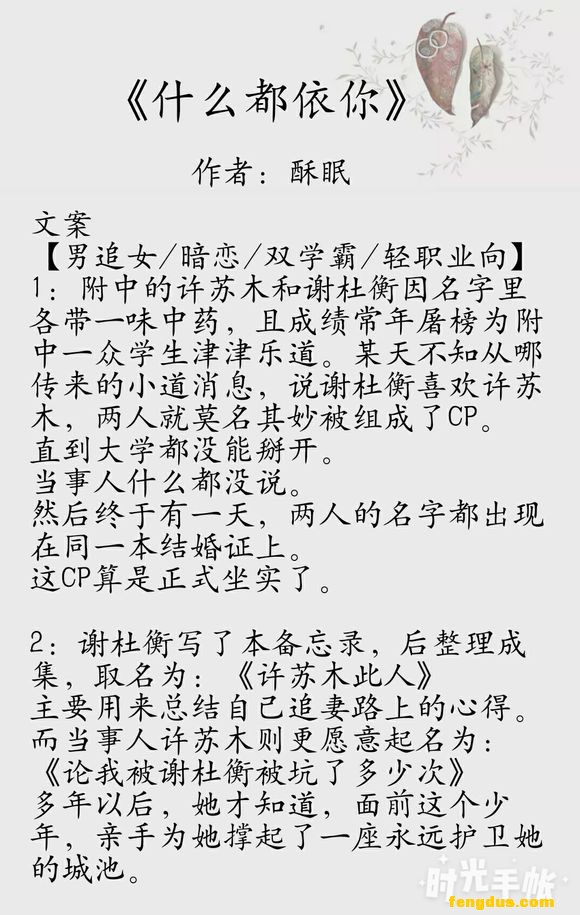 《什么都依你》
作者：酥眠
文案
【男追女/暗恋/双学霸/轻职业向】
1：附中的许苏木和谢杜衡因名字里
各带一味中药，且成绩常年屠榜为附
中一众学生津津乐道。某天不知从哪
传来的小道消息，说谢杜衡喜欢许苏
木，两人就莫名其妙被组成了CP。
直到大学都没能掰开。
当事人什么都没说。
然后终于有一天，两人的名字都出现
在同一本结婚证上。
这CP算是正式坐实了。
2：谢杜衡写了本备忘录，后整理成
集，取名为：《许苏木此人》
主要用来总结自己追妻路上的心得。
而当事人许苏木则更愿意起名为：
《论我被谢杜衡被坑了多少次》
多年以后，她才知道，面前这个少
年，亲手为她撑起了一座永远护卫她
的城池。
时光手帐
fengdus.com